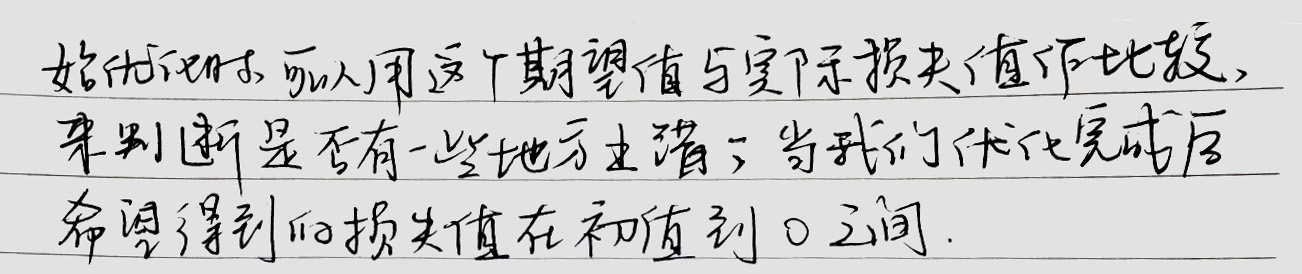 始优化时可以用这个期望值与实际损失值作比较,
来判断是否有一些地方出错了当我们优化完成后
希望得到的损失值在初值到0之间.